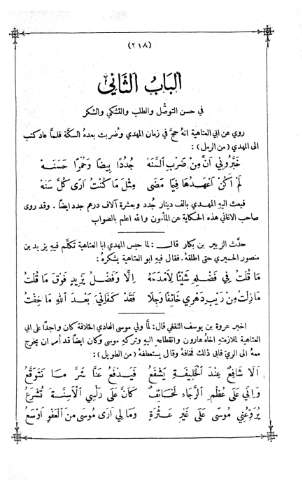 (٢١٨)
الباب الثاني
في حسن التوصُّل والطلب والتشكي والشكر
روي عن ابي العتاهية انهُ حجَّ في زمان المهدي وضُربت بعدهُ السكَّة فلمَّا عاد كتب
الى المهدي (من الرمل):
خَبَّرُونِي أَنَّ مِنْ ضَرْبِ ٱلسَّنَهْ جُدُدًا بِيضًا وَحُمْرًا حَسَنَهْ
لَمْ أَكُنْ أَعْهَدُهَا فِيمَا مَضَى مِثْلَ مَا كُنْتُ أَرَى كُلَّ سَنَهْ
فبعث اليهِ المهدي بالف دينار جُدد وعشرة آلاف درهم جدد ايضًا. وقد روى
صاحب الاغاني هذه الحكاية عن المأمون والله اعلم بالصواب
حدَّث الزبير بن بكَّار قال: لمَّا حبس المهدي ابا العتاهية تكلَّم فيهِ يزيد بن
منصور الحميري حتى اطلقهُ. فقال فيهِ ابو العتاهية يشكرهُ:
مَا قُلْتُ فِي فَضْلِهِ شَيْئًا لِأَمْدَحَهُ إِلَّا وَفَضْلُ يَزِيدٍ فَوْقَ مَا قُلْتُ
مَا زِلْتُ مِنْ رَيْبِ دَهْرِي خَائِفًا وَجِلًا فَقَدْ كَفَانِيَ بَعْدَ ٱللهِ مَا خِفْتُ
اخبر عروة بن يوسف الثقفي قال: لمَّا ولي موسى الهادي الخلافة كان واجدًا على ابي
العتاهية لملازمتهِ اخاهُ هارون وانقطاعهِ اليهِ وتركهِ موسى وكان ايضًا قد امر ان يخرج
معهُ الى الري فابى ذلك فخافهُ وقال يستعطفهُ (من الطويل):
أَلَا شَافِعٌ عِنْدَ ٱلْخَلِيفَةِ يَشْفَعُ فَيَدْفَعُ عَنَّا شَرَّ مَا نَتَوَقَّعُ
وَإِنِّي عَلَى عُظْمِ ٱلرَّجَاءِ لَخَائِفٌ كَأَنَّ عَلَى رَأْسِي ٱلْأَسِنَّةُ تُشْرَعُ
يُرَوِّعُنِي مُوسَى عَلَى غَيْرِ عَثْرَةٍ وَمَا لِي أَرَى مُوسَى مِنَ ٱلْعَفْوِ أَوْسَعُ